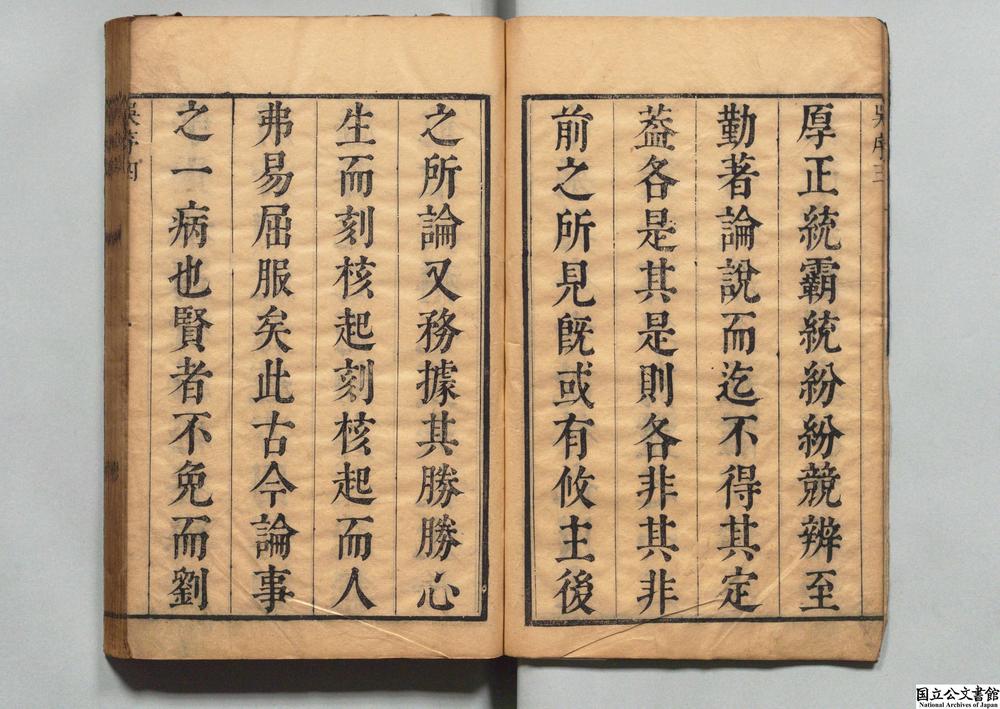 吳序三
厚正統霸統紛紛競辨至
勤著論說而迄不得其定
蓋各是其是則各非其非
前之所見旣或有攸主後
之所論又務據其勝勝心
生而刻核起刻核起而人
弗易屈服矣此古今論事
之一病也賢者不免而劉
吳序四
国立公文書館
National Archives of Japan